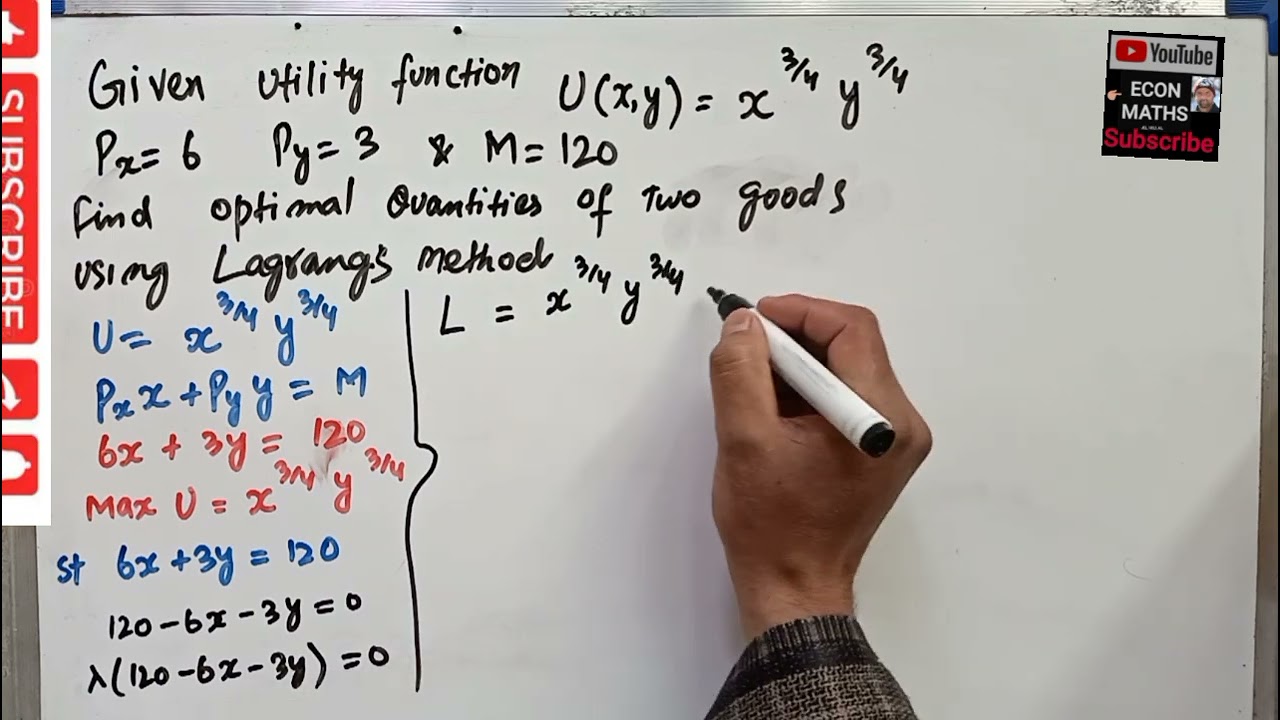 Given utility function U(x,y) = x^3/4 y^3/4
Px = 6 Py = 3 & M = 120
Find optimal Quantities of Two goods
using Lagrang's method
U = x^3/4 y^3/4
Px x + Py y = M
6x + 3y = 120
Max U = x^3/4 y^3/4
St 6x + 3y = 120
120 - 6x - 3y = 0
λ(120 - 6x - 3y) = 0
L = x^3/4 y^3/4
YouTube
ECON
MATHS
Subscribe
SUBSCRIBE